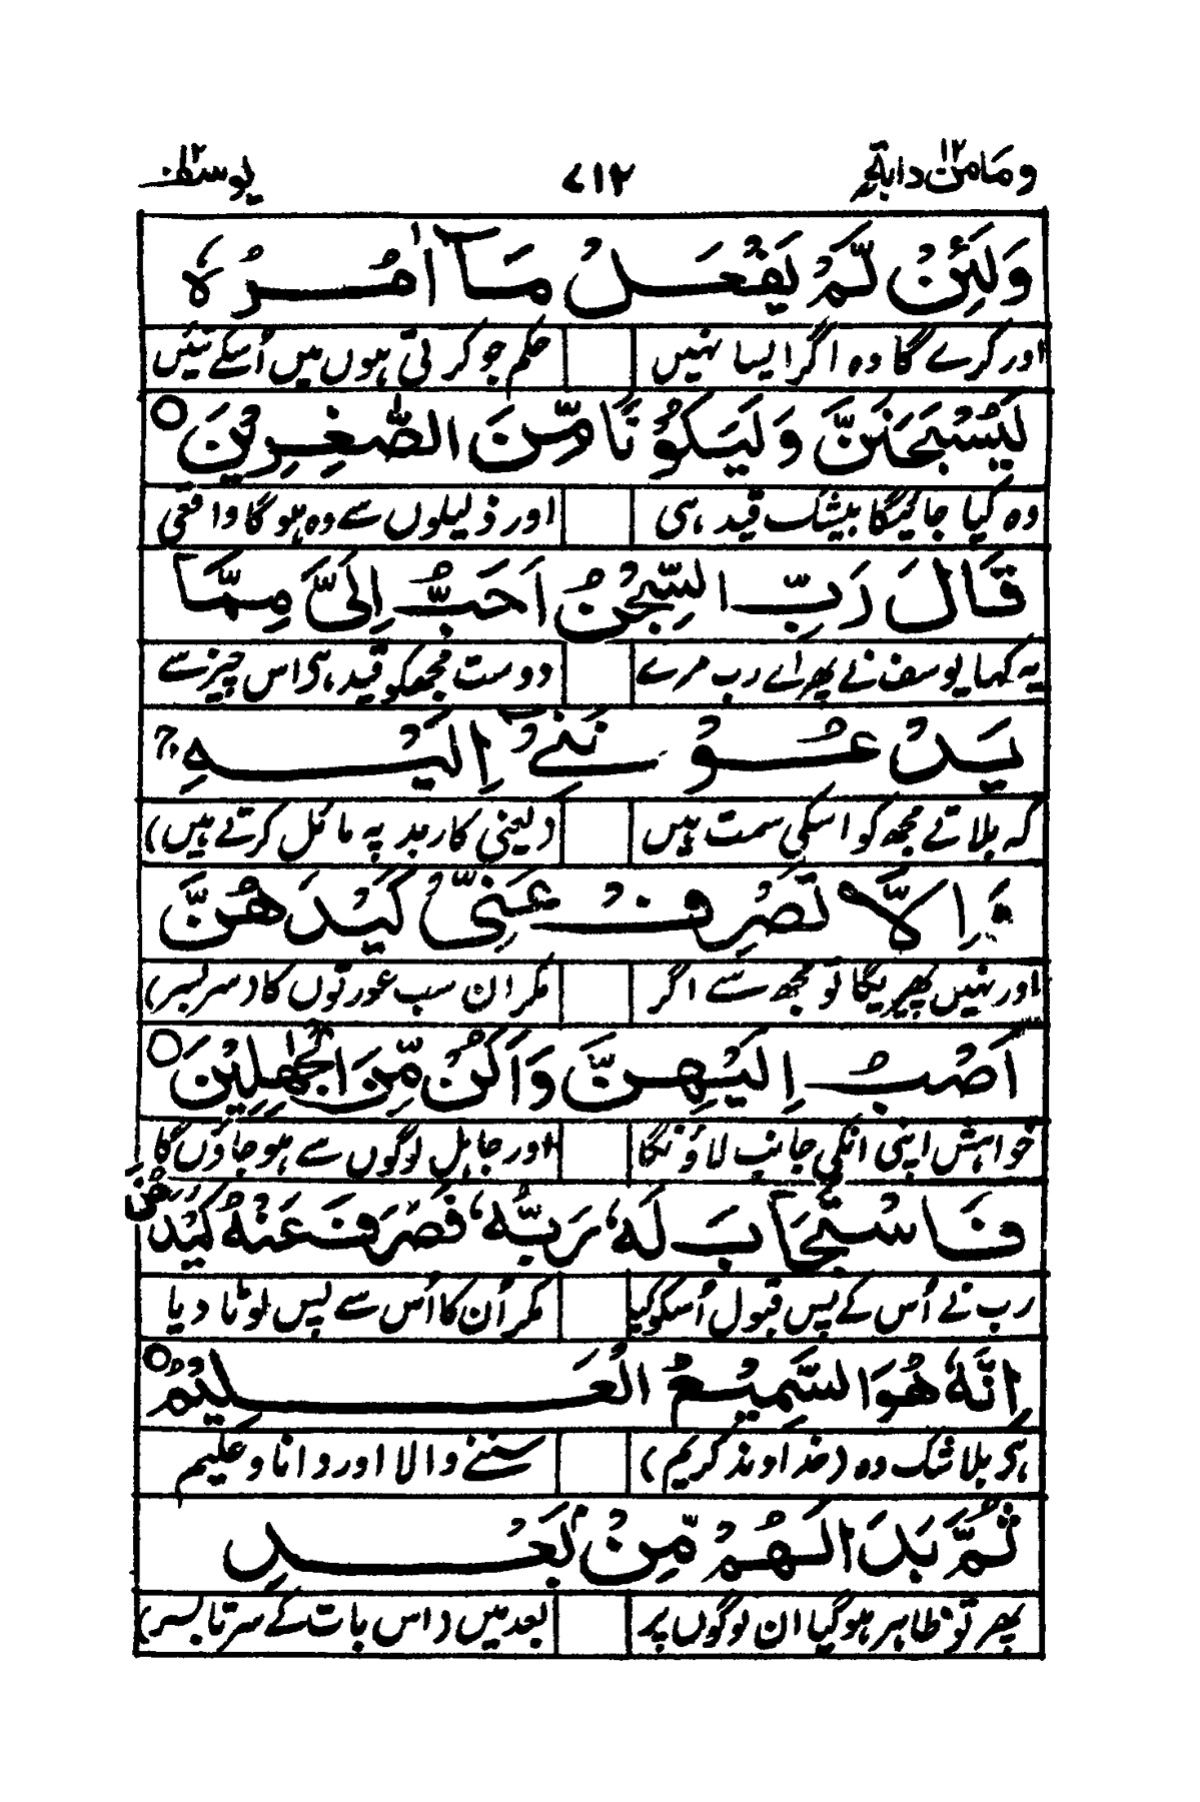 وما من دابة ١٢ ٧١٢ يوسف ١٢
وَلَئِنْ لَّمْ يَفْعَلْ مَآ اٰمُرُهٗ
اور کرے گا وہ اگر ایسا نہیں حکم جو کرتی ہوں میں اُسکے تئیں
لَيُسْجَنَنَّ وَلَيَكُوْنًا مِّنَ الصّٰغِرِيْنَ ○
وہ کیا جائیگا بیشک قید ہی اور ذلیلوں سے وہ ہو گا واقعی
قَالَ رَبِّ السِّجْنُ اَحَبُّ اِلَیَّ مِمَّا
یہ کہا یوسف نے پھر اے رب مرے دوست مجھکو قید ہی اس چیز سے
يَدْعُوْنَنِیْٓ اِلَيْهِ ج
کہ بلاتے مجھ کو اسکی سمت ہیں (یعنی کاربد پہ مائل کرتے ہیں)
وَاِلَّا تَصْرِفْ عَنِّیْ كَيْدَهُنَّ
اور نہیں پھیریگا تو مجھ سے اگر مکر ان سب عورتوں کا (سر بسر)
اَصْبُ اِلَيْهِنَّ وَاَكُنْ مِّنَ الْجٰهِلِيْنَ ○
خواہش اپنی انکی جانب لاؤنگا اور جاہل لوگوں سے ہو جاؤں گا
فَاسْتَجَابَ لَهٗ رَبُّهٗ فَصَرَفَ عَنْهُ كَيْدَهُنَّ
رب نے اُس کے پس قبول اُسکو کیا مکر اُن کا اُس سے پس لوٹا دیا
اِنَّهٗ هُوَ السَّمِيْعُ الْعَلِيْمُ ○
ہی بلا شک وہ (خداوند کریم) سننے والا اور دانا و علیم
ثُمَّ بَدَا لَهُمْ مِّنْۢ بَعْدِ
پھر تو ظاہر ہو گیا ان لوگوں پر بعد میں (اس بات کے سر تا بسر)